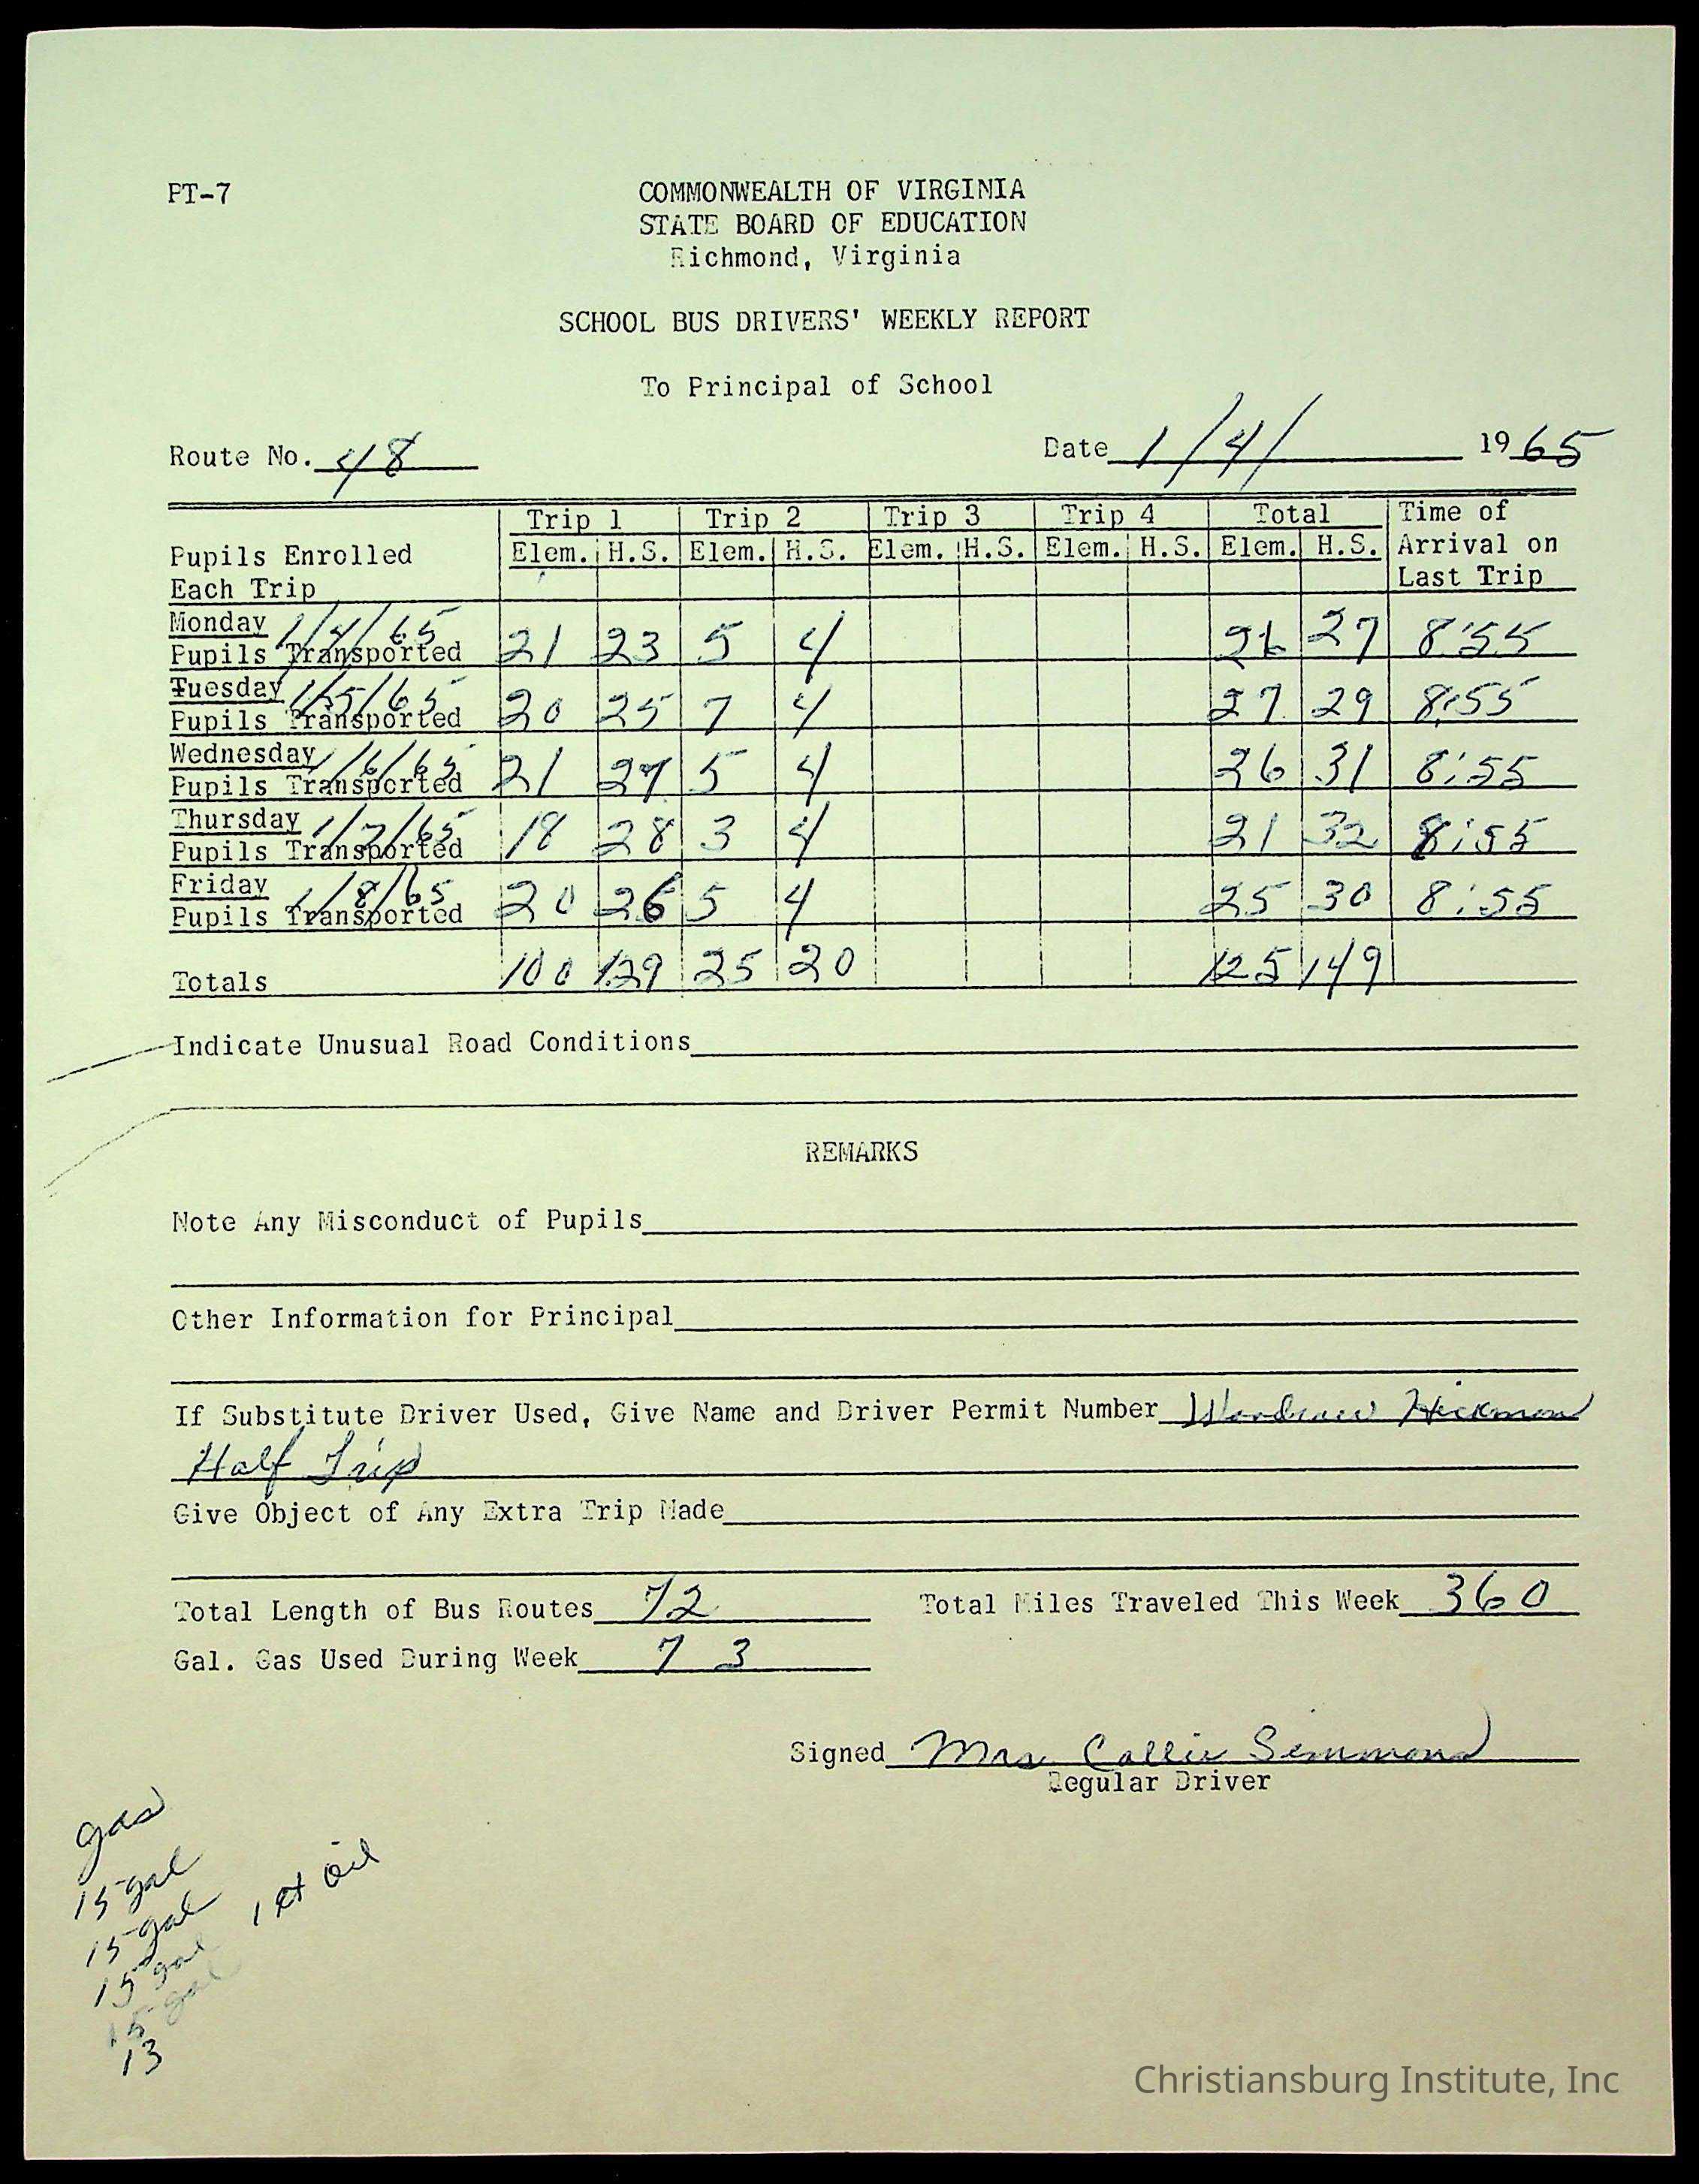 PT-7
COMMONWEALTH OF VIRGINIA
STATE BOARD OF EDUCATION
Richmond, Virginia
SCHOOL BUS DRIVERS' WEEKLY REPORT
To Principal of School
Route No. 48 Date 1/4/ 1965
Trip 1 Trip 2 Trip 3 Trip 4 Total Time of
Pupils Enrolled Elem. H.S. Elem. H.S. Elem. H.S. Elem. H.S. Elem. H.S. Arrival on
Each Trip Last Trip
Monday 1/4/65
Pupils Transported 21 23 5 4 26 27 8:55
Tuesday 1/5/65
Pupils Transported 20 25 7 4 27 29 8:55
Wednesday 1/6/65
Pupils Transported 21 27 5 4 26 31 8:55
Thursday 1/7/65
Pupils Transported 18 28 3 4 21 32 8:55
Friday 1/8/65
Pupils Transported 20 26 5 4 25 30 8:55
Totals 100 129 25 20 125 149
Indicate Unusual Road Conditions
REMARKS
Note Any Misconduct of Pupils
Other Information for Principal
If Substitute Driver Used, Give Name and Driver Permit Number Woodrow Hickman
Half Trip
Give Object of Any Extra Trip Made
Total Length of Bus Routes 72 Total Miles Traveled This Week 360
Gal. Gas Used During Week 73
Signed Mrs. Callie Simmons
Regular Driver
gas
15 gal
15 gal 1 qt oil
15 gal
15 gal
13
Christiansburg Institute, Inc